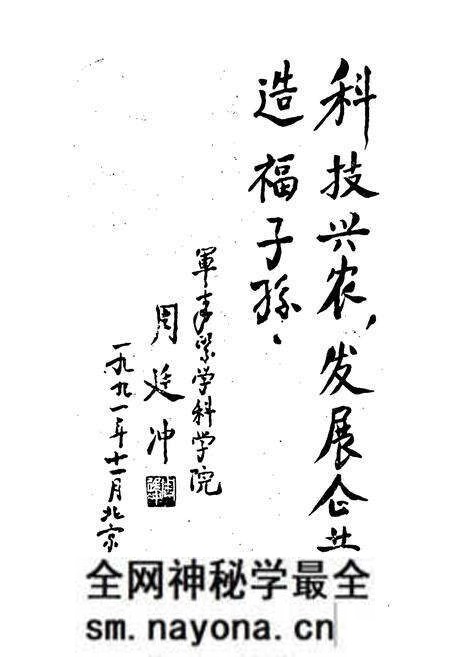 科技兴农，发展企业
造福子孫.
軍事醫学科学院
周廷冲
一九九一年十一月北京
全网神秘学最全
sm.nayona.cn